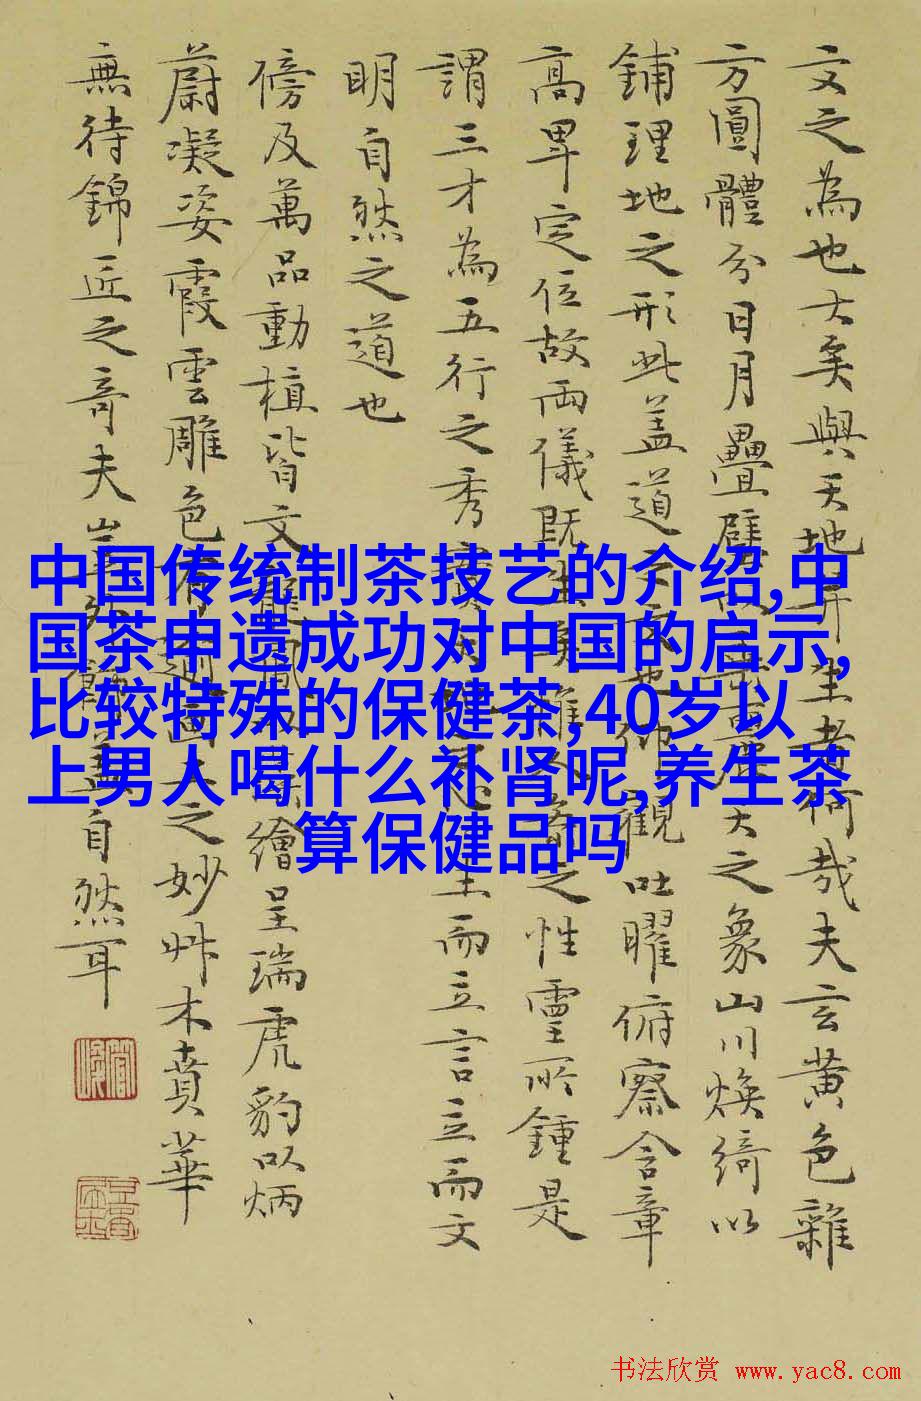 文之為也大矣與天地并生者何哉夫玄黄色雜
方圓體分日月疊璧以垂麗天之象山川煥綺以
鋪理地之形此盖道之文也仰觀吐曜俯察含章
高卑定位故兩儀既生矣惟人參之性靈所鍾是
謂三才為五行之秀實生而立言立而文
明自然之道也
傍及萬品動植皆文龍鳳以藻繪呈瑞虎豹以炳
蔚凝姿霞雲雕色有逾畫工之妙艸木賁華
無待錦匠之奇夫豈外飾盖自然耳
中国传统制茶技艺的介绍,中
国茶申遗成功对中国的启示,
比较特殊的保健茶,40岁以
上男人喝什么补肾呢,养生茶
算保健品吗
书法欣赏 www.yac8.com